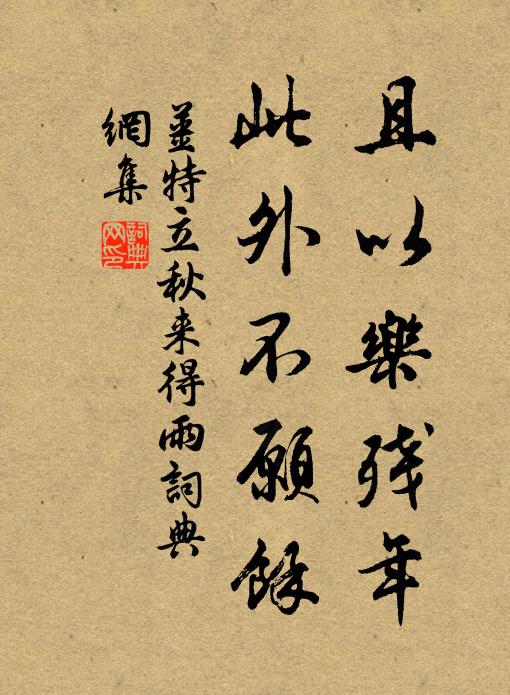 且以樂残年
此外不願餘
姜特立秋来得雨詞典
網集
詞典網印